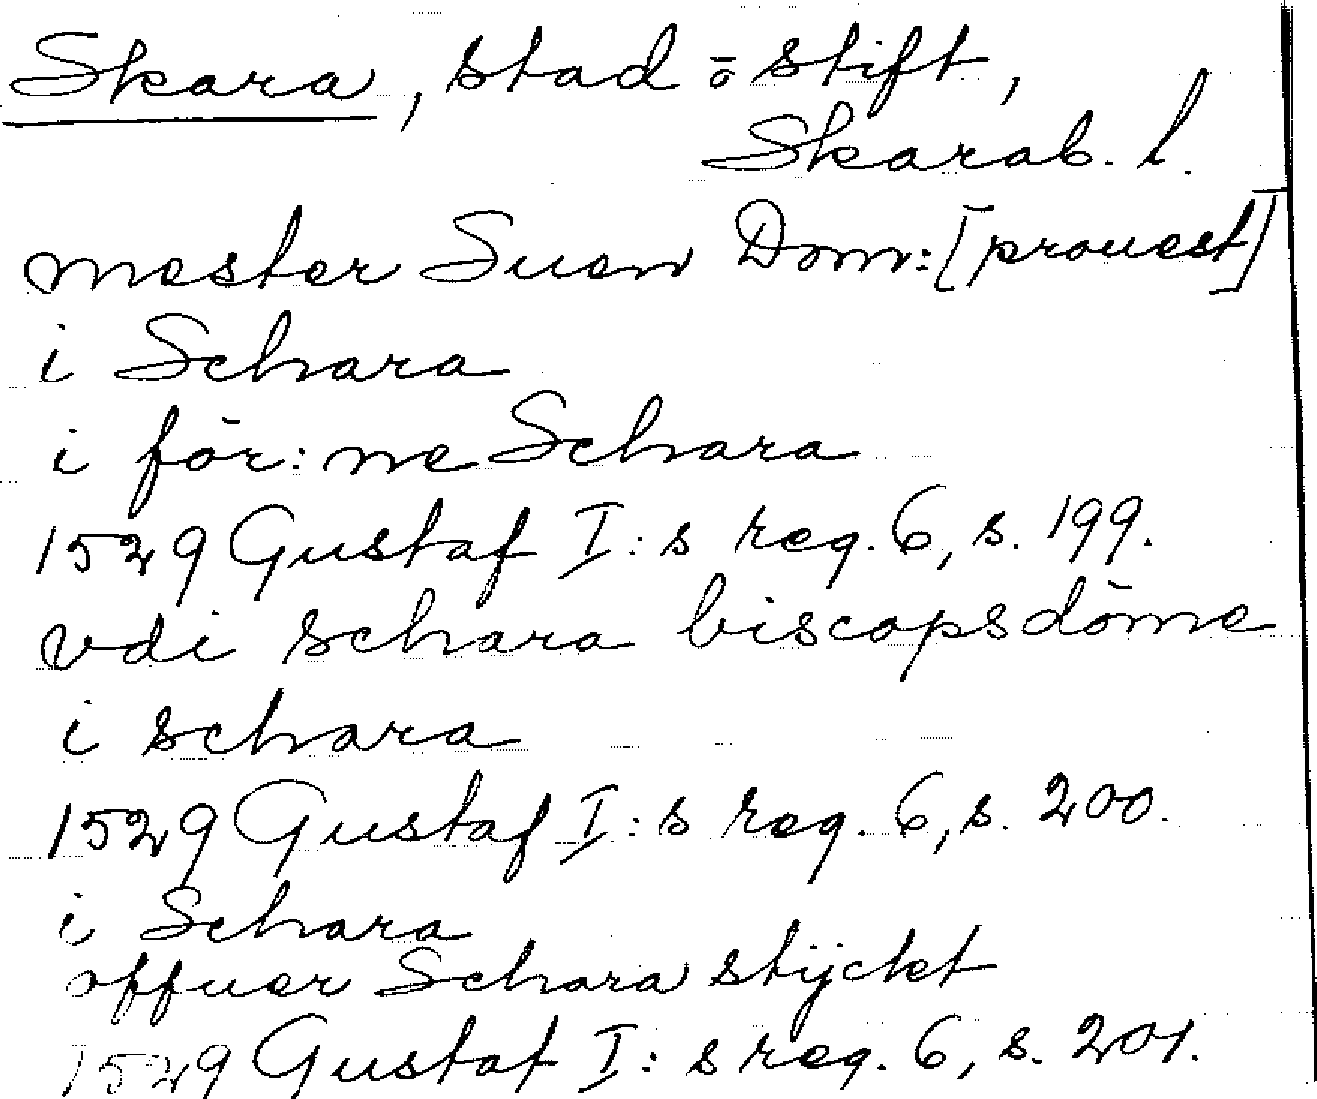 Skara, stad o stift,
Skarab. l.
mester Suen Dom: [prouest]
i Schara
i för: ne Schara
1529 Gustaf I:s reg. 6, s. 199.
vdi schara biscopsdöme
i schara
1529 Gustaf I:s reg. 6, s. 200.
i Schara
offuer Schara stÿcket
1529 Gustaf I:s reg. 6, s. 201.